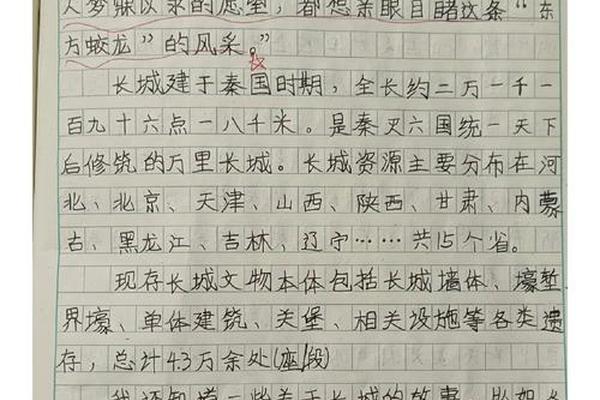 人梦寐以求的愿望，都想亲眼目睹这条“东
方蛟龙”的风采。”
长城建于秦国时期，全长约二万一千一
百九十六点一八千米。是秦灭六国统一天下
后修筑的万里长城。长城资源主要分布在河
北、北京、天津、山西、陕西、甘肃、内蒙
古、黑龙江、吉林、辽宁……共15个省。
现存长城文物本体包括长城墙体、壕堑
界壕、单体建筑、关堡、相关设施等各类遗
存，总计4.3万余处(座/段)
我还知道一些关于长城的故事，比如